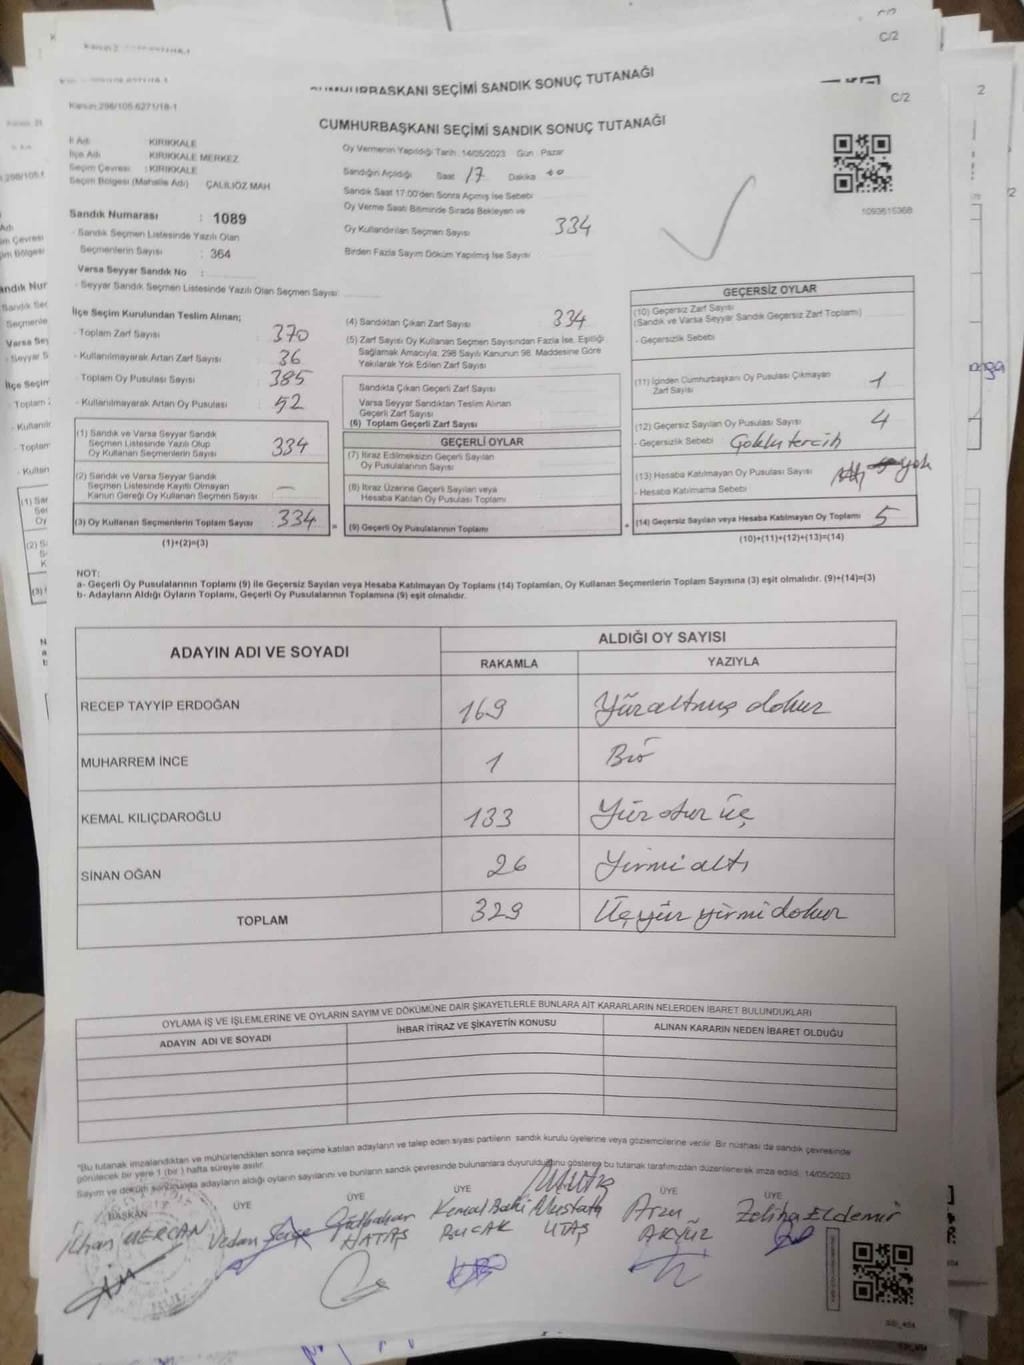 C/2
CUMHURBAŞKANI SEÇİMİ SANDIK SONUÇ TUTANAĞI
Kanun 298/105.6271/18-1
C/2
CUMHURBAŞKANI SEÇİMİ SANDIK SONUÇ TUTANAĞI
İl Adı KIRIKKALE
İlçe Adı KIRIKKALE MERKEZ
Seçim Çevresi : KIRIKKALE
Seçim Bölgesi (Mahalle Adı) ÇALILIÖZ MAH
Sandık Numarası : 1089
- Sandık Seçmen Listesinde Yazılı Olan
Seçmenlerin Sayısı : 364
Varsa Seyyar Sandık No :
- Seyyar Sandık Seçmen Listesinde Yazılı Olan Seçmen Sayısı:
Oy Vermenin Yapıldığı Tarih: 14/05/2023 Gün: Pazar
Sandığın Açıldığı Saat 17 Dakika
Sandık Saat 17:00'den Sonra Açılmış İse Sebebi
Oy Verme Saati Bitiminde Sırada Bekleyen ve
Oy Kullandırılan Seçmen Sayısı 334
Birden Fazla Sayım Döküm Yapılmış İse Sayısı
1093615368
İlçe Seçim Kurulundan Teslim Alınan;
- Toplam Zarf Sayısı : 370
- Kullanılmayarak Artan Zarf Sayısı : 36
- Toplam Oy Pusulası Sayısı : 385
- Kullanılmayarak Artan Oy Pusulası : 52
(1) Sandık ve Varsa Seyyar Sandık
Seçmen Listesinde Yazılı Olup
Oy Kullanan Seçmenlerin Sayısı : 334
(2) Sandık ve Varsa Seyyar Sandık
Seçmen Listesinde Kayıtlı Olmayan
Kanun Gereği Oy Kullanan Seçmen Sayısı : —
(3) Oy Kullanan Seçmenlerin Toplam Sayısı : 334
(1)+(2)=(3)
(4) Sandıktan Çıkan Zarf Sayısı 334
(5) Zarf Sayısı Oy Kullanan Seçmen Sayısından Fazla İse, Eşitliği
Sağlamak Amacıyla, 298 Sayılı Kanunun 98. Maddesine Göre
Yakılarak Yok Edilen Zarf Sayısı
Sandıkta Çıkan Geçerli Zarf Sayısı
Varsa Seyyar Sandıktan Teslim Alınan
Geçerli Zarf Sayısı
(6) Toplam Geçerli Zarf Sayısı
GEÇERLİ OYLAR
(7) İtiraz Edilmeksizin Geçerli Sayılan
Oy Pusulalarının Sayısı
(8) İtiraz Üzerine Geçerli Sayılan veya
Hesaba Katılan Oy Pusulası Toplamı
= (9) Geçerli Oy Pusulalarının Toplamı
GEÇERSİZ OYLAR
(10) Geçersiz Zarf Sayısı
(Sandık ve Varsa Seyyar Sandık Geçersiz Zarf Toplamı)
- Geçersizlik Sebebi
(11) İçinden Cumhurbaşkanı Oy Pusulası Çıkmayan
Zarf Sayısı 1
(12) Geçersiz Sayılan Oy Pusulası Sayısı 4
- Geçersizlik Sebebi Çoklu tercih
(13) Hesaba Katılmayan Oy Pusulası Sayısı yok
- Hesaba Katılmama Sebebi
+ (14) Geçersiz Sayılan veya Hesaba Katılmayan Oy Toplamı 5
(10)+(11)+(12)+(13)=(14)
NOT:
a- Geçerli Oy Pusulalarının Toplamı (9) ile Geçersiz Sayılan veya Hesaba Katılmayan Oy Toplamı (14) Toplamları, Oy Kullanan Seçmenlerin Toplam Sayısına (3) eşit olmalıdır. (9)+(14)=(3)
b- Adayların Aldığı Oyların Toplamı, Geçerli Oy Pusulalarının Toplamına (9) eşit olmalıdır.
ADAYIN ADI VE SOYADI
ALDIĞI OY SAYISI
RAKAMLA YAZIYLA
RECEP TAYYİP ERDOĞAN 169 Yüzaltmış dokuz
MUHARREM İNCE 1 Bir
KEMAL KILIÇDAROĞLU 133 Yüz otuz üç
SİNAN OĞAN 26 Yirmi altı
TOPLAM 329 Üçyüz yirmi dokuz
OYLAMA İŞ VE İŞLEMLERİNE VE OYLARIN SAYIM VE DÖKÜMÜNE DAİR ŞİKAYETLERLE BUNLARA AİT KARARLARIN NELERDEN İBARET BULUNDUKLARI
ADAYIN ADI VE SOYADI İHBAR İTİRAZ VE ŞİKAYETİN KONUSU ALINAN KARARIN NEDEN İBARET OLDUĞU
"Bu tutanak imzalandıktan ve mühürlendikten sonra seçime katılan adayların ve talep eden siyasi partilerin sandık kurulu üyelerine veya gözlemcilerine verilir. Bir nüshası da sandık çevresinde
görülecek bir yere 1 (bir) hafta süreyle asılır.
Sayım ve döküm sonucunda adayların aldığı oyların sayılarını ve bunların sandık çevresinde bulunanlara duyurulduğunu gösteren bu tutanak tarafımızdan düzenlenerek imza edildi. 14/05/2023
BAŞKAN ÜYE ÜYE ÜYE ÜYE ÜYE
İlhan MERCAN Vedan Gülbahar HATAŞ Kemal Baki BUCAK Mustafa UTAŞ Arzu AKYÜZ Zeliha Eldemir